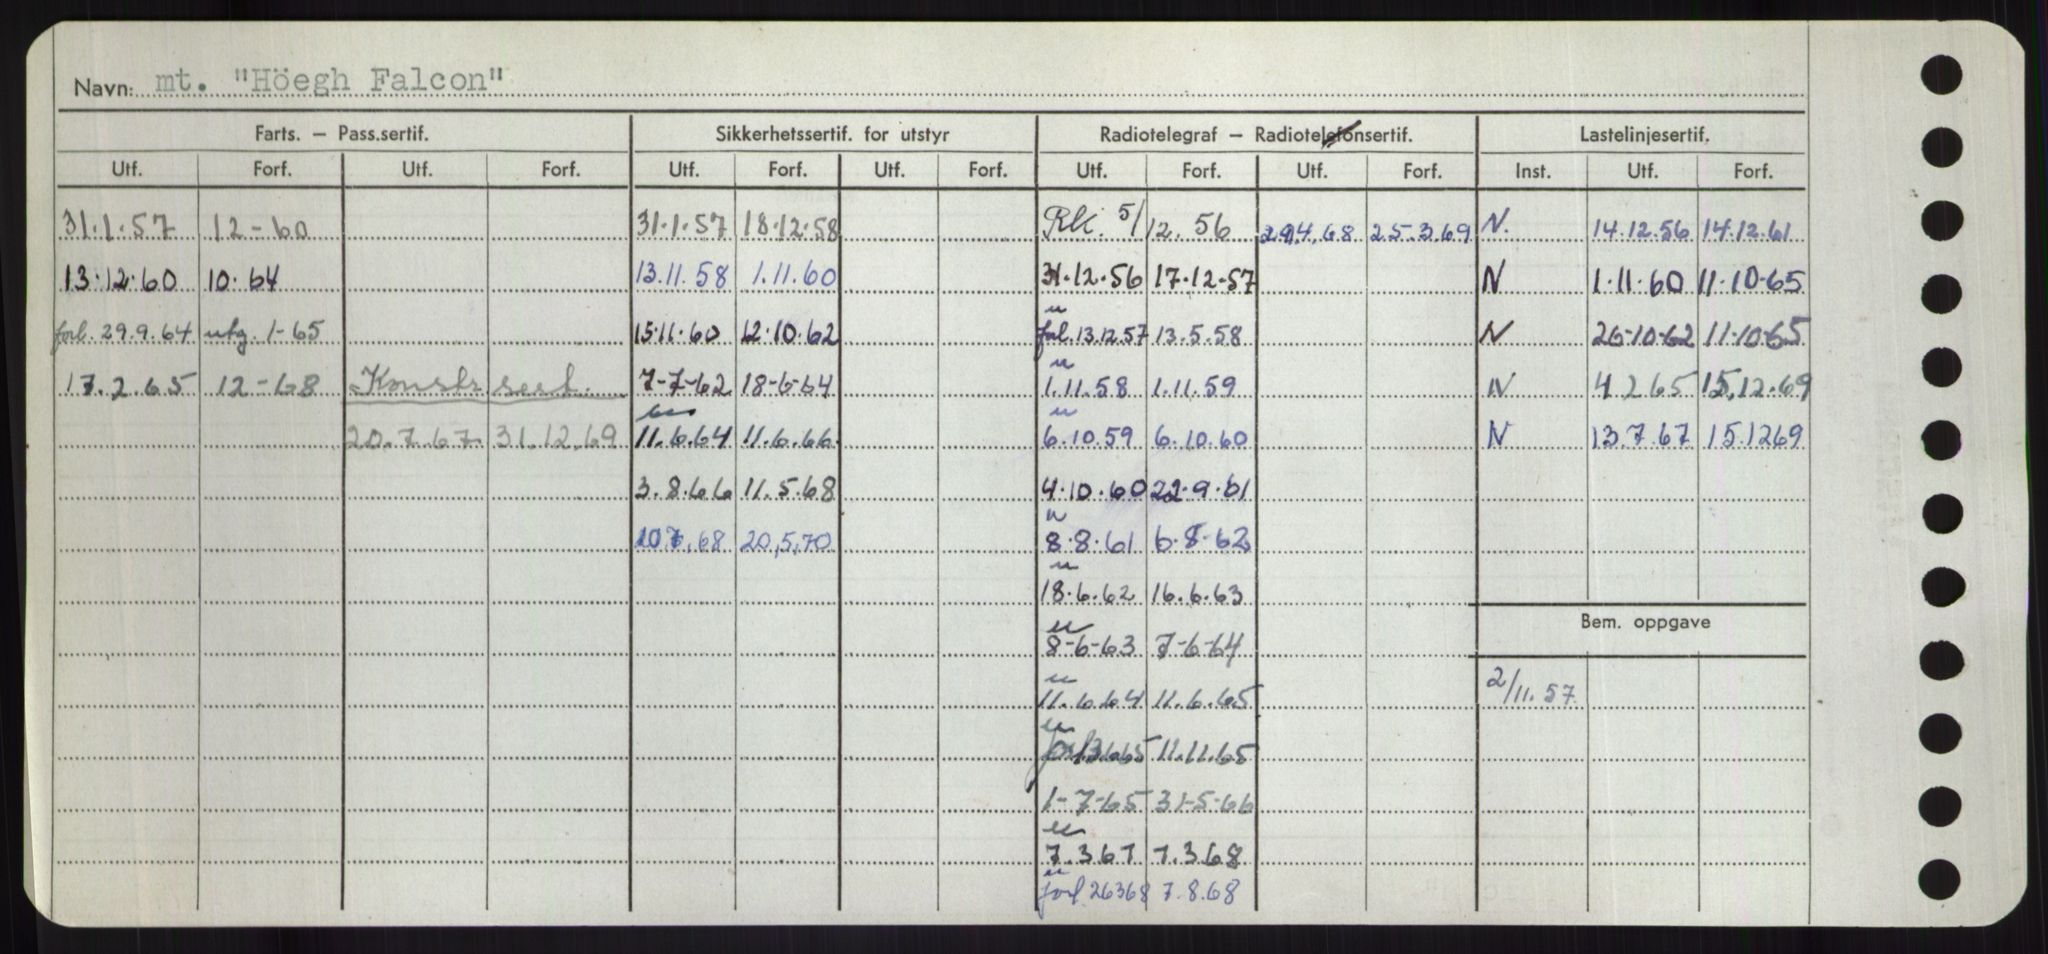 Navn: mt. "Höegh Falcon"
Farts. – Pass.sertif. Sikkerhetssertif. for utstyr Radiotelegraf – Radiotelefonsertif. Lastelinjesertif.
Utf. Forf. Utf. Forf. Utf. Forf. Utf. Forf. Utf. Forf. Utf. Forf. Inst. Utf. Forf.
31.1.57 12-60 31.1.57 18.12.58 Rlk. 5/12.56 29.4.68 25.3.69 N. 14.12.56 14.12.61
13.12.60 10.64 13.11.58 1.11.60 31.12.56 17.12.57 N 1.11.60 11.10.65
forl. 29.9.64 utg. 1-65 15.11.60 12.10.62 forl. 13.12.57 13.5.58 N 26-10-62 11-10-65
17.2.65 12-68 Konstr sert. 7-7-62 18-6-64 1.11.58 1.11.59 N 4 2 65 15.12.69
20.7.67 31.12.69 11.6.64 11.6.66 6.10.59 6.10.60 N 13.7.67 15.12 69
3.8.66 11.5.68 4.10.60 22.9.61
68 20,5,70 8.8.61 6-8-62
18.6.62 16.6.63
Bem. oppgave
8-6-63 7-6-64
11.6.64 11.6.65 2/11.57
forl. 11.11.65
1-7-65 31-5-66
7.3 67 7.3 68
forl. 26368 7.8.68